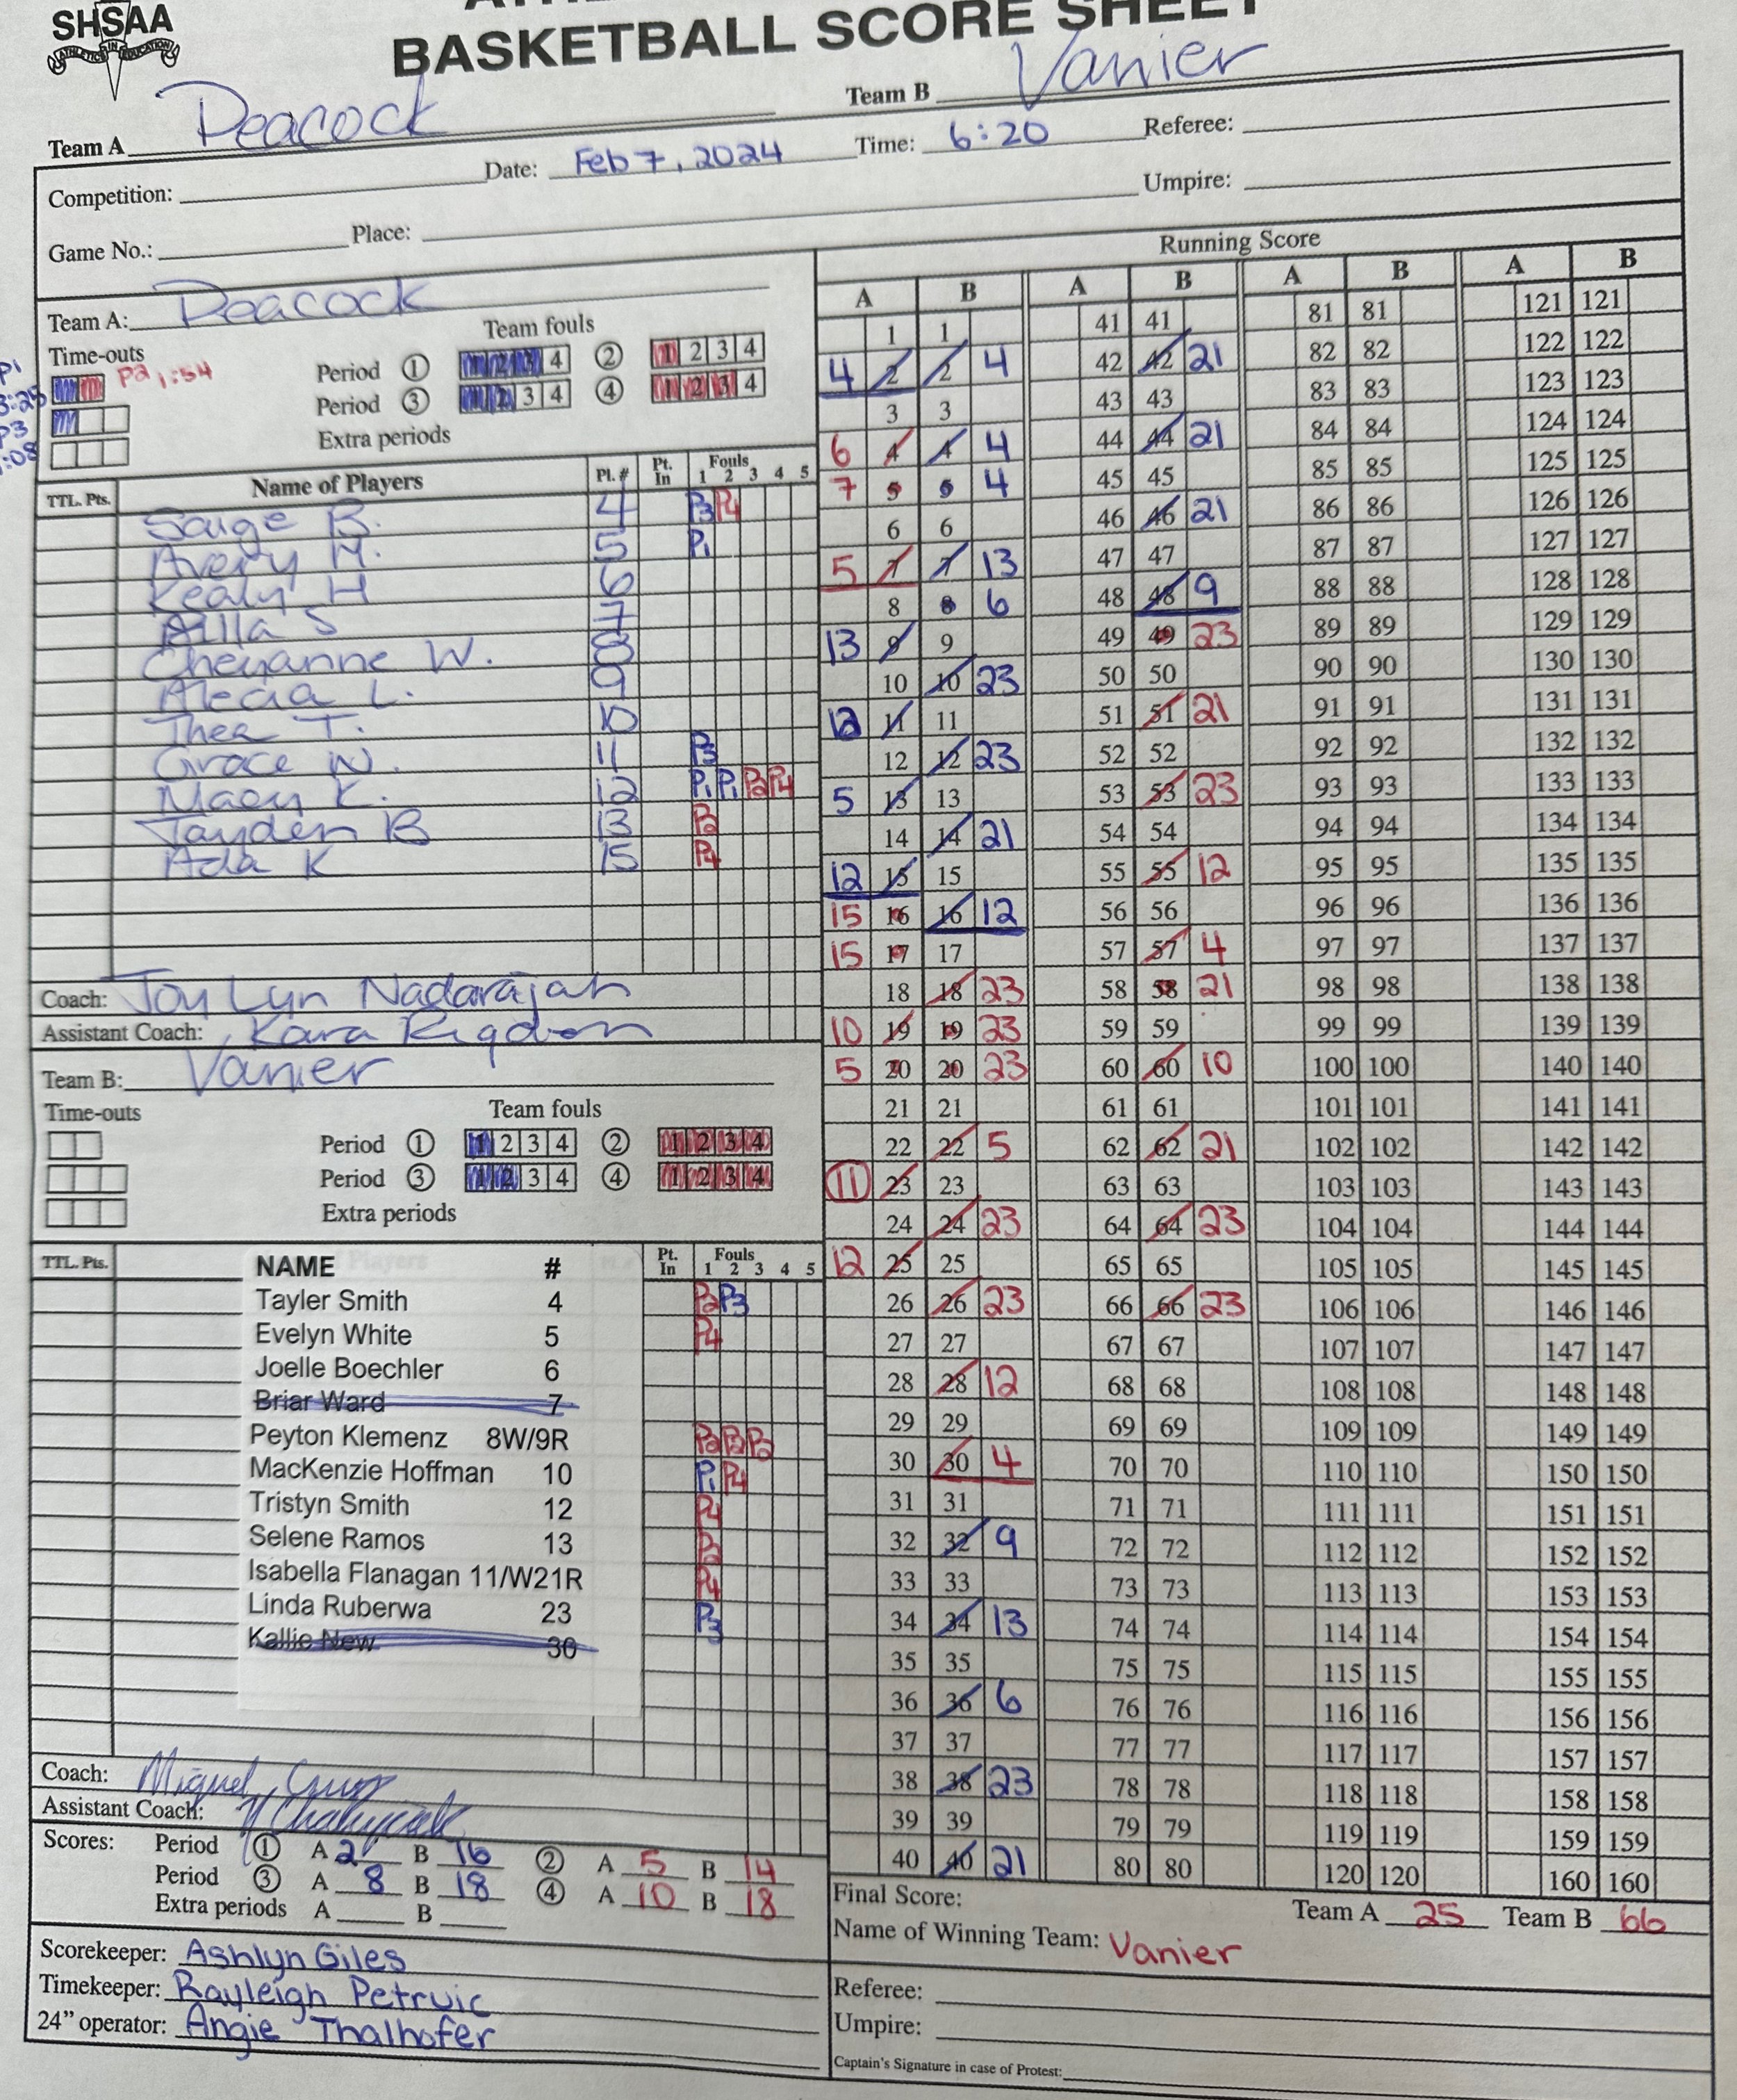 SHSAA
ATHLETICS IN EDUCATION
BASKETBALL SCORE SHEET
Team A Peacock Team B Vanier
Competition: Date: Feb 7, 2024 Time: 6:20 Referee:
Game No.: Place: Umpire:
Team A: Peacock
Time-outs Team fouls
P2 1:54
Period ① 1 2 3 4 ② 1 2 3 4
Period ③ 1 2 3 4 ④ 1 2 3 4
Extra periods
TTL. Pts. Name of Players Pl. # Pt. In Fouls 1 2 3 4 5
Saige B. 4 P3 P4
Avery H. 5 P1
Kealy H 6
Ailla S 7
Cheyanne W. 8
Alecia L. 9
Thea T. 10
Grace W. 11 P3
Macy K. 12 P1 P1 P2 P4
Jayden B 13 P2
Ada K 15 P4
Coach: Joy Lyn Nadarajah
Assistant Coach: Kara Rigdon
Team B: Vanier
Time-outs Team fouls
Period ① 1 2 3 4 ② 1 2 3 4
Period ③ 1 2 3 4 ④ 1 2 3 4
Extra periods
TTL. Pts. NAME # Pt. In Fouls 1 2 3 4 5
Tayler Smith 4 P2 P3
Evelyn White 5 P4
Joelle Boechler 6
Briar Ward 7
Peyton Klemenz 8W/9R P2 P2 P2
MacKenzie Hoffman 10 P1 P4
Tristyn Smith 12 P4
Selene Ramos 13 P2
Isabella Flanagan 11/W21R P4
Linda Ruberwa 23 P3
Kallie New 30
Coach: Miguel Cruz
Assistant Coach:
Scores: Period ① A 2 B 16 ② A 5 B 14
Period ③ A 8 B 18 ④ A 10 B 18
Extra periods A B
Scorekeeper: Ashlyn Giles
Timekeeper: Rayleigh Petruic
24” operator: Angie Thalhofer
Running Score
A B A B A B A B
1 1 41 41 81 81 121 121
4 2 2 4 42 42 21 82 82 122 122
3 3 43 43 83 83 123 123
6 4 4 4 44 44 21 84 84 124 124
7 5 5 4 45 45 85 85 125 125
6 6 46 46 21 86 86 126 126
5 7 7 13 47 47 87 87 127 127
8 8 6 48 48 9 88 88 128 128
13 9 9 49 49 23 89 89 129 129
10 10 23 50 50 90 90 130 130
12 11 11 51 51 21 91 91 131 131
12 12 23 52 52 92 92 132 132
5 13 13 53 53 23 93 93 133 133
14 14 21 54 54 94 94 134 134
12 15 15 55 55 12 95 95 135 135
15 16 16 12 56 56 96 96 136 136
15 17 17 57 57 4 97 97 137 137
18 18 23 58 58 21 98 98 138 138
10 19 19 23 59 59 99 99 139 139
5 20 20 23 60 60 10 100 100 140 140
21 21 61 61 101 101 141 141
22 22 5 62 62 21 102 102 142 142
11 23 23 63 63 103 103 143 143
24 24 23 64 64 23 104 104 144 144
12 25 25 65 65 105 105 145 145
26 26 23 66 66 23 106 106 146 146
27 27 67 67 107 107 147 147
28 28 12 68 68 108 108 148 148
29 29 69 69 109 109 149 149
30 30 4 70 70 110 110 150 150
31 31 71 71 111 111 151 151
32 32 9 72 72 112 112 152 152
33 33 73 73 113 113 153 153
34 34 13 74 74 114 114 154 154
35 35 75 75 115 115 155 155
36 36 6 76 76 116 116 156 156
37 37 77 77 117 117 157 157
38 38 23 78 78 118 118 158 158
39 39 79 79 119 119 159 159
40 40 21 80 80 120 120 160 160
Final Score: Team A 25 Team B 66
Name of Winning Team: Vanier
Referee:
Umpire:
Captain's Signature in case of Protest: